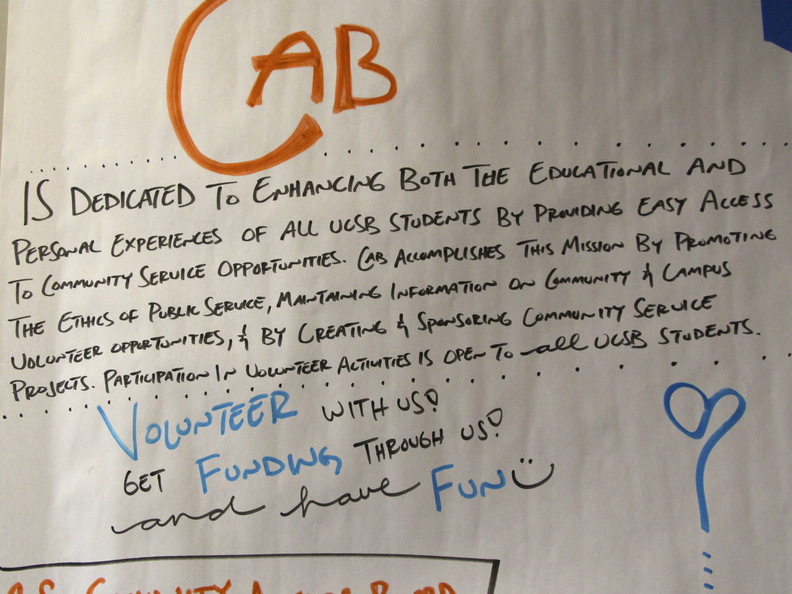 CAB
IS DEDICATED TO ENHANCING BOTH THE EDUCATIONAL AND
PERSONAL EXPERIENCES OF ALL UCSB STUDENTS BY PROVIDING EASY ACCESS
TO COMMUNITY SERVICE OPPORTUNITIES. CAB ACCOMPLISHES THIS MISSION BY PROMOTING
THE ETHICS OF PUBLIC SERVICE, MAINTAINING INFORMATION ON COMMUNITY & CAMPUS
VOLUNTEER OPPORTUNITIES, & BY CREATING & SPONSORING COMMUNITY SERVICE
PROJECTS. PARTICIPATION IN VOLUNTEER ACTIVITIES IS OPEN TO all UCSB STUDENTS.
VOLUNTEER WITH US!
GET FUNDING THROUGH US!
and have FUN
COMMUNITY